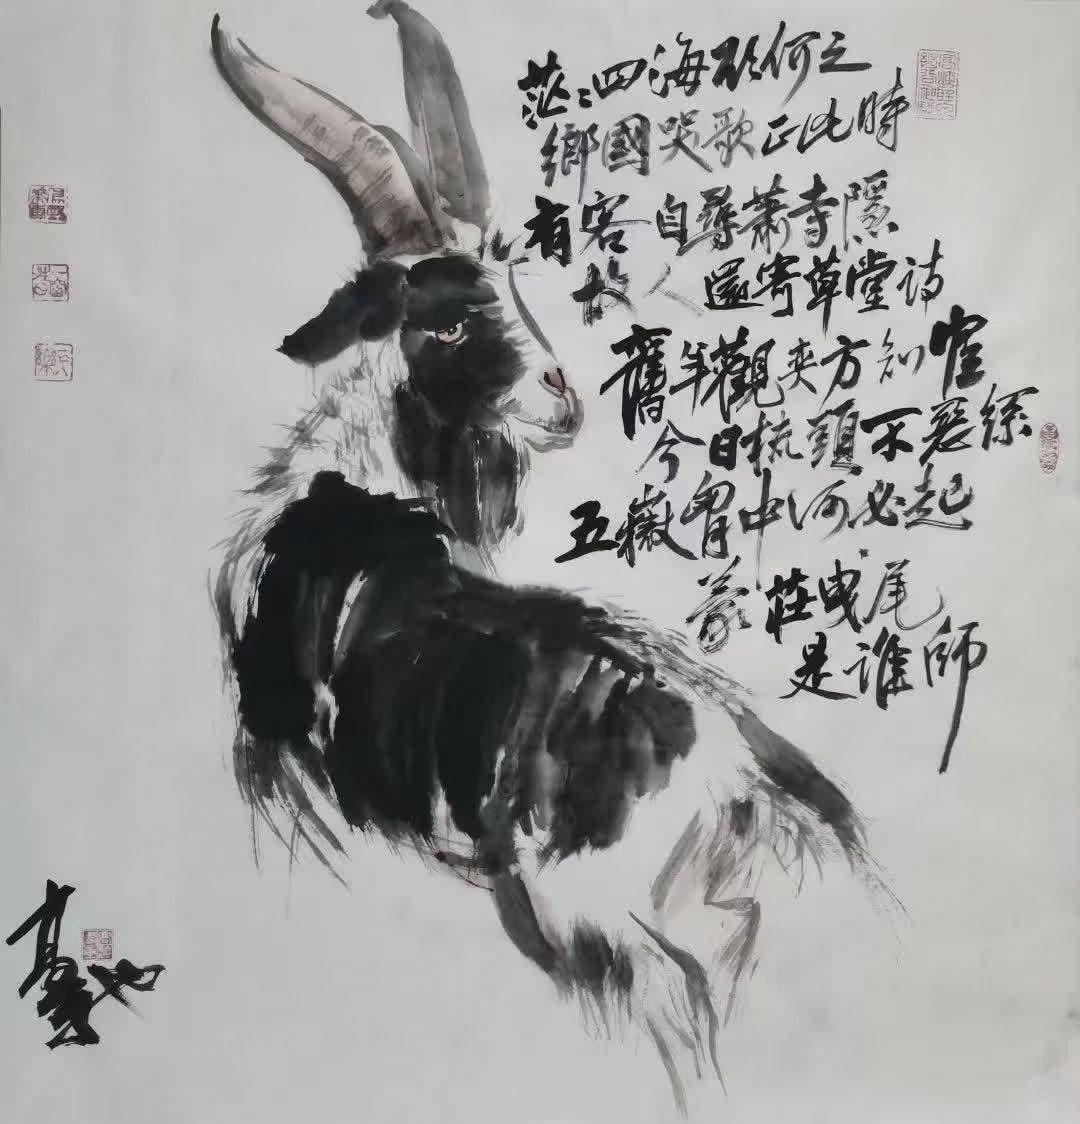 茫〻四海欲何之
鄉國哭歌正此時
有客自尋蕭寺隱
故人還寄草堂詩
舊年觀奕方知
今日梳頭不
五嶽胷中何必起
蒙莊曳尾
是誰師